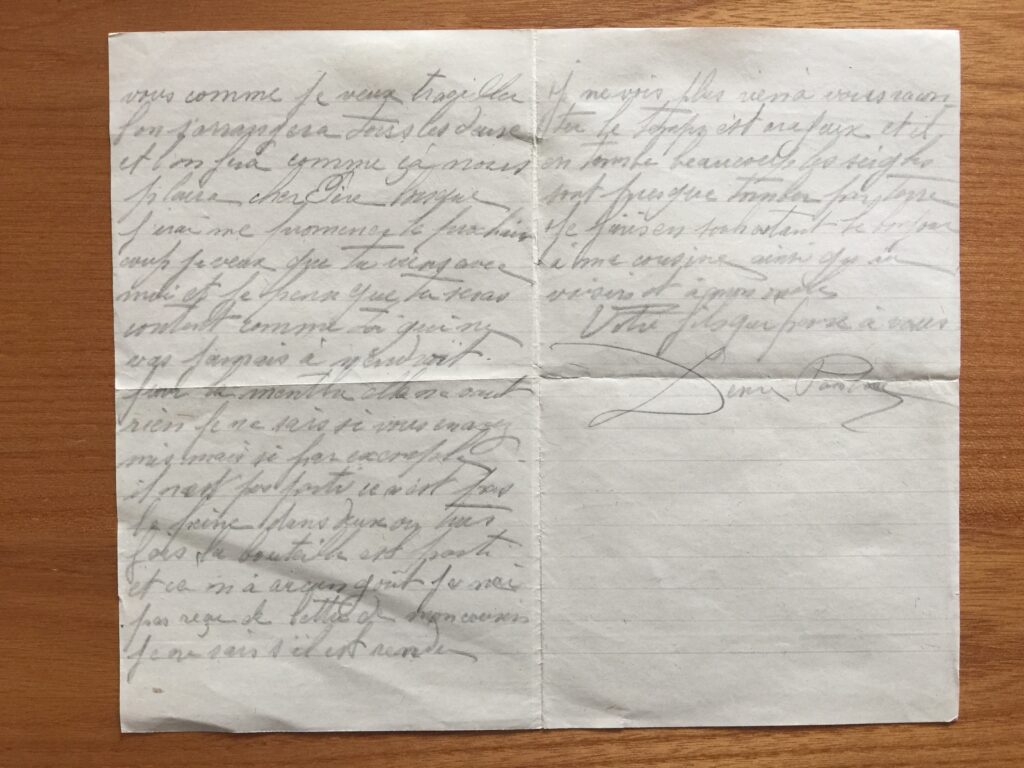 vous comme je veux
l'on s'arrangera tous les deux
et l'on fera comme çà nous
plaira cher Père lorsque
j'irai me promener le prochain
coup je veux que tu viens avec
moi et je pense que tu seras
content comme toi qui ne
vas jamais à
pour la menthe elle ne vaut
rien je ne sais si vous en avez
mis mais si par exemple
il n'est pas forti ce n'est pas
la peine dans deux ou trois
fois la bouteille est parti
et ça m'a aucun goût je n'ai
pas reçu de lettre de mon cousin
je ne sais s'il est rendu
Je ne vois plus rien à vous racon
ter le temps est a l'eaux et il
en tombe beaucoup les seigles
sont presque tomber par terre
Je finis en souhaitant le bonjour
à ma cousine ainsi qu'au
voisin et à mon
Votre fils qui pense à vous